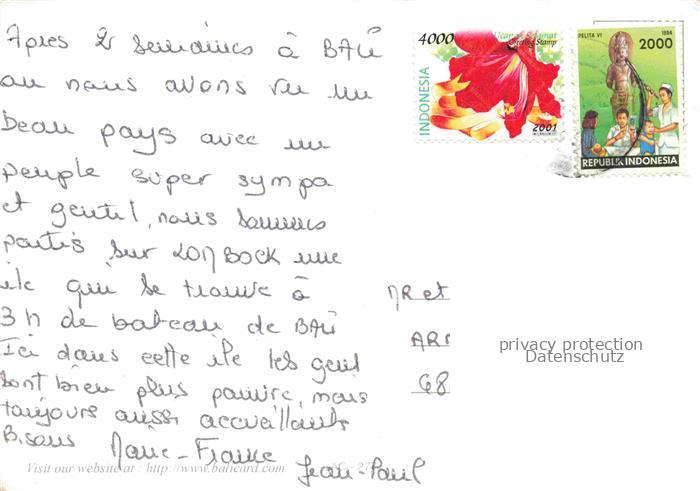 Apres 2 semaines à BALI
4000
Ucapan Selamat
Greeting Stamp
INDONESIA
2001
PELITA VI
1994
2000
REPUBLIK INDONESIA
ou nous avons vu un
beau pays avec un
peuple super sympa
et gentil, nous sommes
partis sur LOMBOCK une
ile qui se trouve à
3 h de bateau de BALI
Ici dans cette ile les gens
sont bien plus pauvre, mais
toujours aussi accueillants
Bisous Marie-France
Jean-Paul
MR et
AR
68
privacy protection
Datenschutz
Visit our website at : http://www.balicard.com